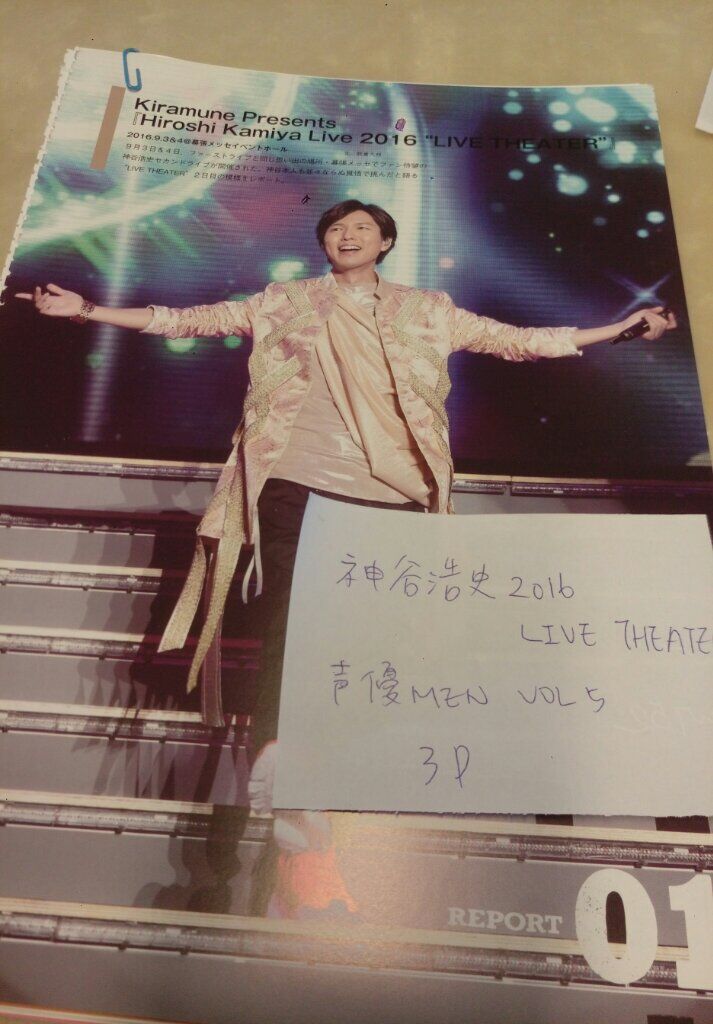 Kiramune Presents
『Hiroshi Kamiya Live 2016 "LIVE THEATER"』
2016.9.3&4@幕張メッセイベントホール
9月3日&4日、ファーストライブと同じ思い出の場所・幕張メッセでファン待望の
神谷浩史セカンドライブが開催された。神谷本人も並々ならぬ覚悟で挑んだと語る
"LIVE THEATER" 2日目の模様をレポート。
神谷浩史 2016
LIVE THEATE
声優MEN VOL 5
3P
REPORT 01